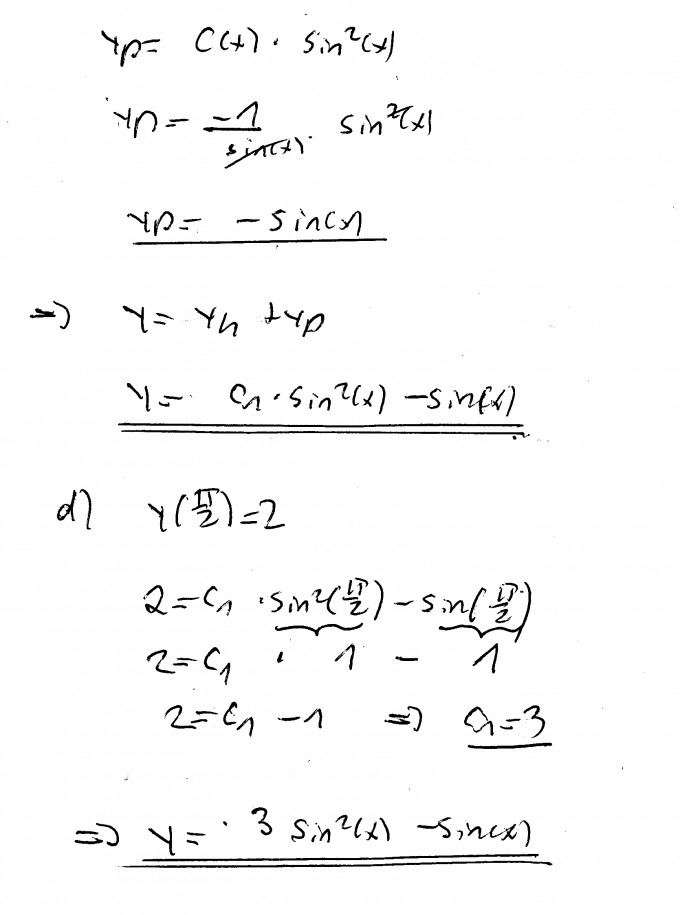 yp = C(x) · sin²(x)
yp = -1/sin(x) · sin²(x)
yp = - sin(x)
=> y = yh + yp
y = C₁ · sin²(x) - sin(x)
d) y(π/2) = 2
2 = C₁ · sin²(π/2) - sin(π/2)
2 = C₁ · 1 - 1
2 = C₁ - 1 => C₁ = 3
=> y = 3 sin²(x) - sin(x)